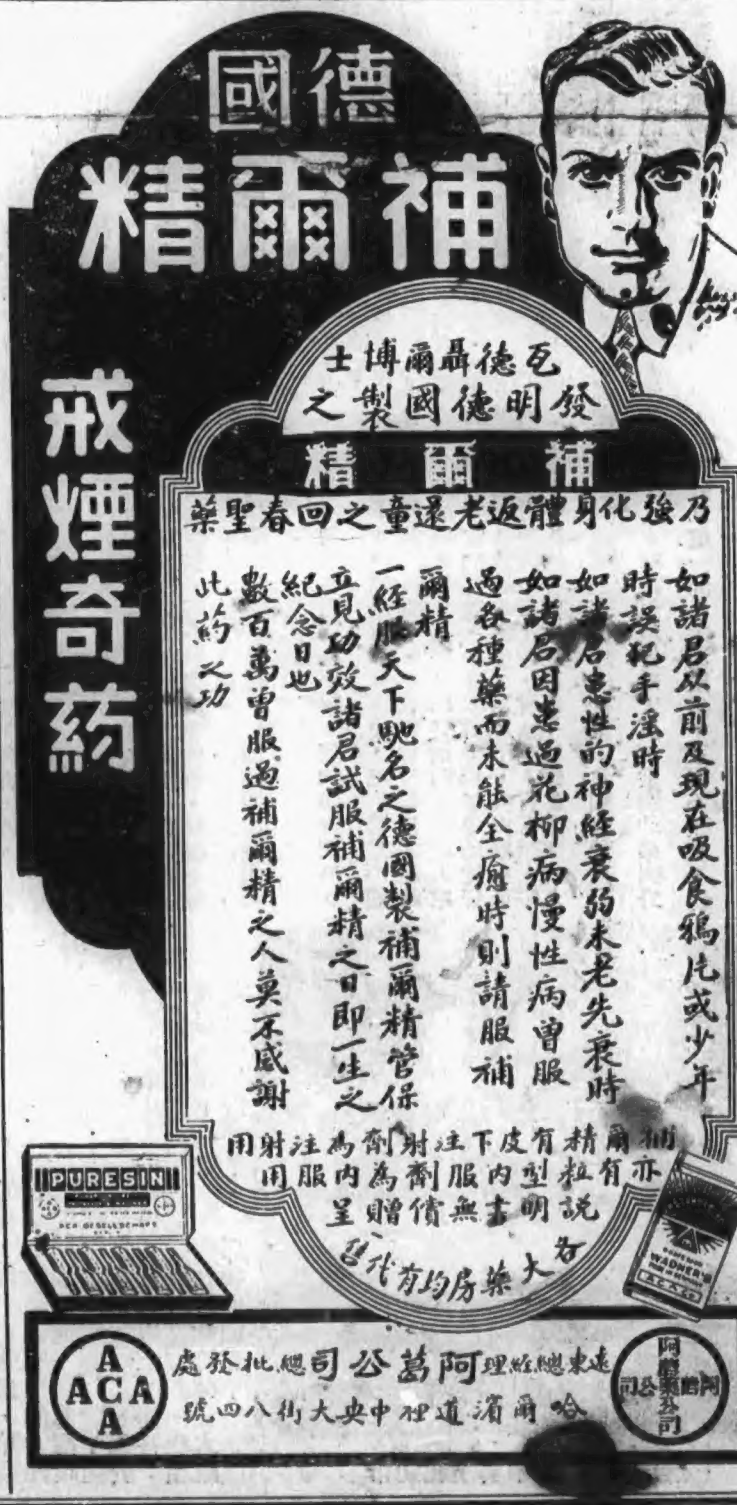 德國
補爾精
戒煙奇葯
瓦德聶爾博士
發明德國製之
補爾精
乃強化身體返老還童之回春聖藥
如諸君从前及現在吸食鴉片或少年
時誤犯手淫時
如諸君患性的神経衰弱未老先衰時
如諸君因患過花柳病慢性病曾服
過各種藥而未能全癒時則請服補
爾精
一経服天下馳名之德國製補爾精管保
立見功效諸君試服補爾精之日即一生之
紀念日也
數百萬曾服過補爾精之人莫不感謝
此葯之功
補爾精有皮下注射劑為注射用
亦有粒型內服劑為內服用
説明書無償贈呈
各大藥房均有代售
PURESIN
WADNER'S
ACA
ACA
遠東總経理阿葛公司總批發處
哈爾濱道裡中央大街八四號